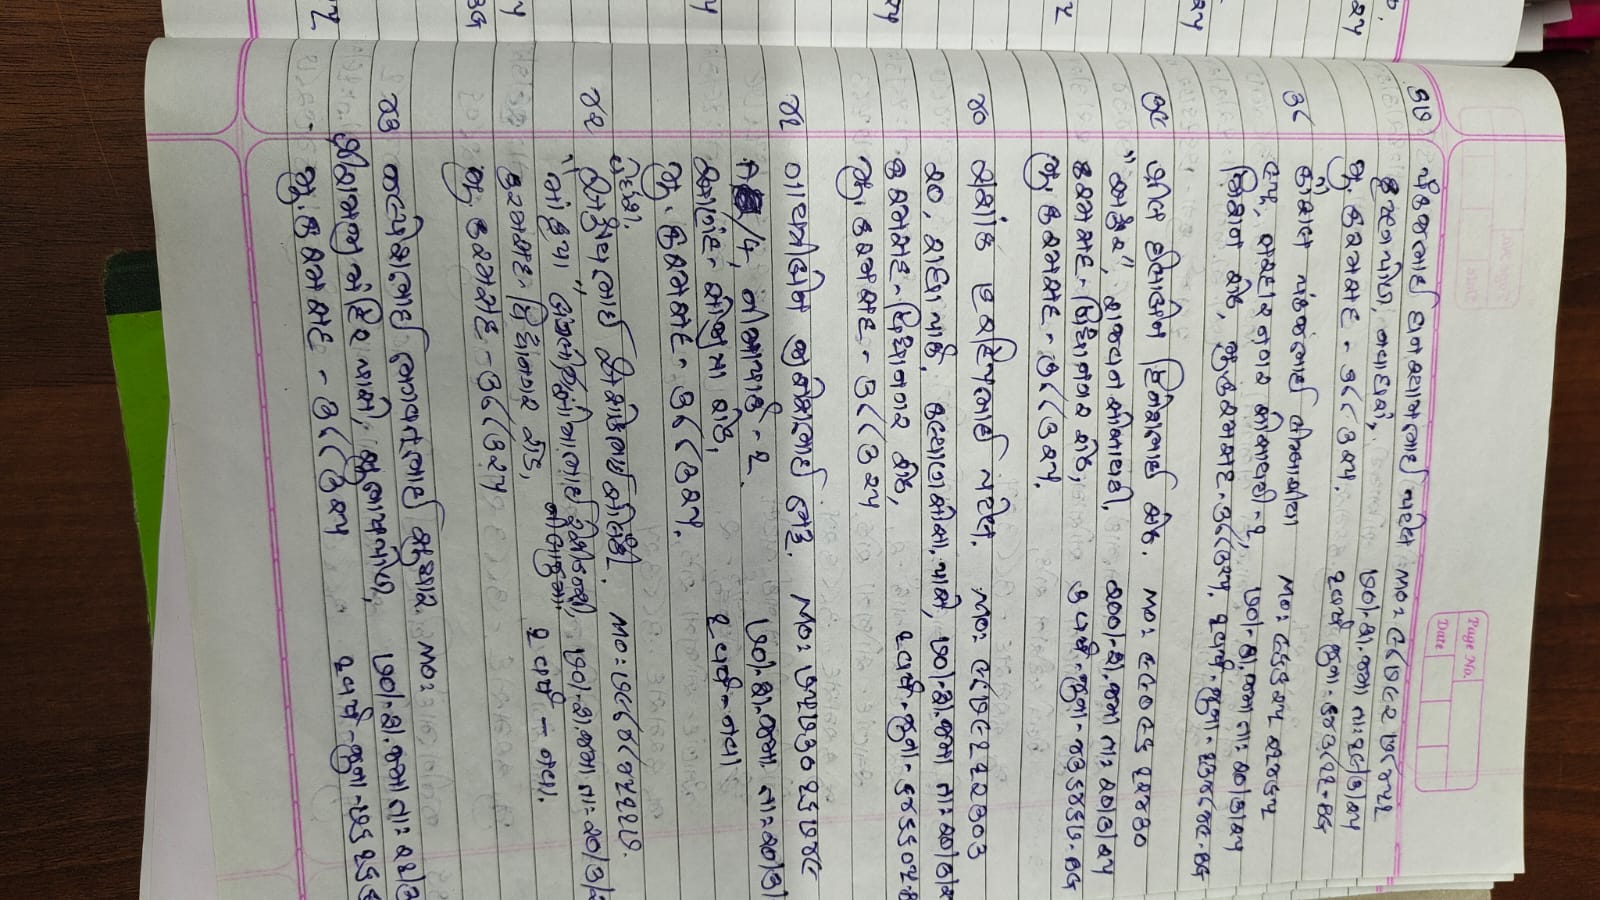 Page No.
Date
૩૭ પંકજભાઈ ઘનશ્યામભાઈ પટેલ MO: ૯૮૭૯૨ ૭૮૪૫૧
કૃષ્ણપોળ, નવાઘરાં,
૭૦/-રૂા.જમા તા:૧૯/૩/૨૫
મુ. કરમસદ - ૩૮૮૩૨૫.
૧વર્ષ જુના - ૬૪૩૮૧૧-BG
૩૮ કૌશલ પંકજભાઈ લીમ્બાચીયા MO: ૯૬૬૨૫ ૨૧૪૬૫
૯૫, સરદારનગર સોસાયટી-૧, ૭૦/-રૂા.જમા તા: ૨૦/૩/૨૫
મિશન રોડ, મુ.કરમસદ-૩૮૮૩૨૫. ૧વર્ષ-જુના-૧૩૪૮૪૯-BG
૩૯ શીલ ઈલાબેન દિનેશભાઈ શેઠ. MO: ૯૯૦૯૬ ૧૨૪૩૦
"અંકુર", રાજધન સોસાયટી, ૨૦૦/-રૂા.જમા તા: ૨૦/૩/૨૫
કરમસદ-વિદ્યાનગર રોડ, ૩વર્ષ-જુના-૪૩૬૪૬૭-BG
મુ. કરમસદ - ૩૮૮૩૨૫.
૪૦ શશાંક હરદિપભાઈ પટેલ. MO: ૯૮૭૯૧ ૧૨૩૦૩
૨૦, રાધાપાર્ક, કલ્યાણ સોસા. પાસે, ૭૦/-રૂા.જમા તા:૨૦/૩/૨
કરમસદ-વિદ્યાનગર રોડ, ૧વર્ષ-જુના-૬૪૬૬૦૫-B
મુ. કરમસદ - ૩૮૮૩૨૫
૪૧ ગાયત્રીબેન મુકેશભાઈ ભટ્ટ. MO: ૭૫૭૩૦ ૧૬૭૪૯
A /4, નીમાપાર્ક - ૧. ૭૦/-રૂા.જમા. તા:૨૦/૩/
આણંદ-સોજીત્રા રોડ, ૧વર્ષ-નવા
મુ. કરમસદ - ૩૮૮૩૨૫.
૪૨ અક્ષયભાઈ અશોકભાઈ સોલંકી. MO: ૭૯૮૪૮૪૫૧૧૭.
"માં કૃપા" ૭૦/-રૂા.જમા તા: ૨૦/૩/૨
કરમસદ-વિદ્યાનગર રોડ, ૧ વર્ષ - નવા.
મુ. કરમસદ - ૩૮૮૩૨૫
૪૩ કલ્પેશભાઈ ભગવતભાઈ સુથાર. MO:
શ્રીરામજી મંદિર પાસે, સુભાષપોળ, ૭૦/-રૂા.જમા તા: ૨૧/૩
મુ. કરમસદ - ૩૮૮૩૨૫ ૧વર્ષ-જુના-૭૬૧૬૬